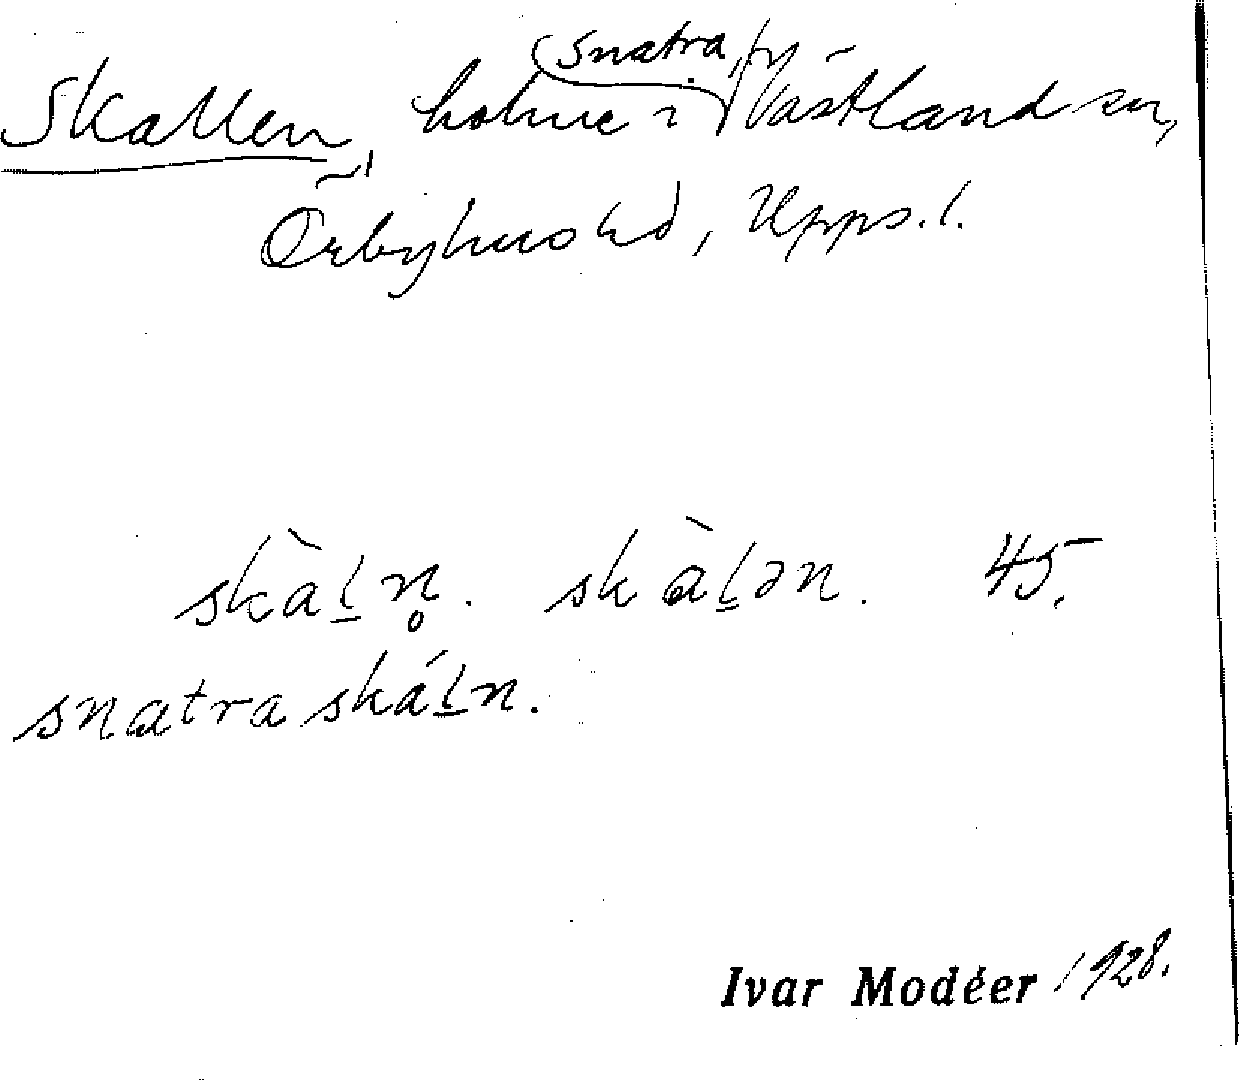 Skallen, holme i Snatra, Västland sn,
Örbyhus hd, Upps. l.
skàḻn̥. skàḻən. 45.
snatraskáḻn.
Ivar Modéer 1928.